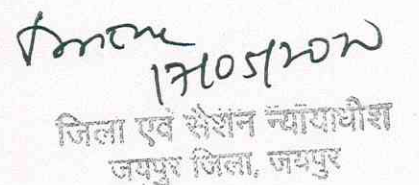 17/05/2022
जिला एवं सेशन न्यायाधीश
जयपुर जिला, जयपुर